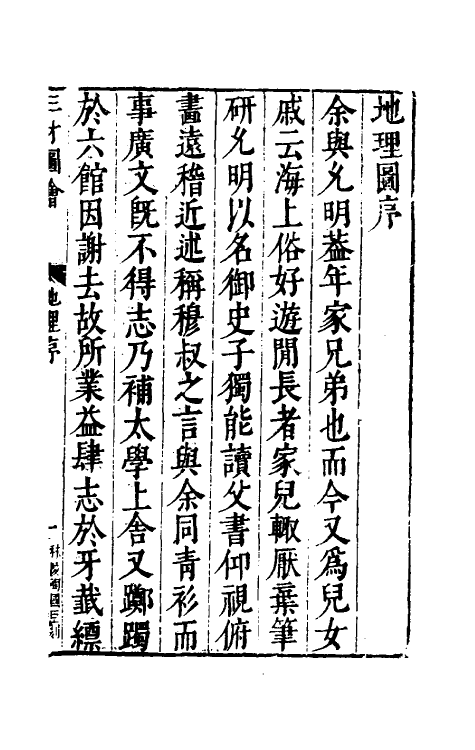 地理圖序
余與允明葢年家兄弟也而今又爲兒女
戚云海上俗好遊閒長者家兒輙厭棄筆
研允明以名御史子獨能讀父書仰視俯
畫遠稽近述稱穆叔之言與余同青衫而
事廣文旣不得志乃補太學上舍又躑躅
於六館因謝去故所業益肆志於牙籖縹
三才圖會
地理序
一